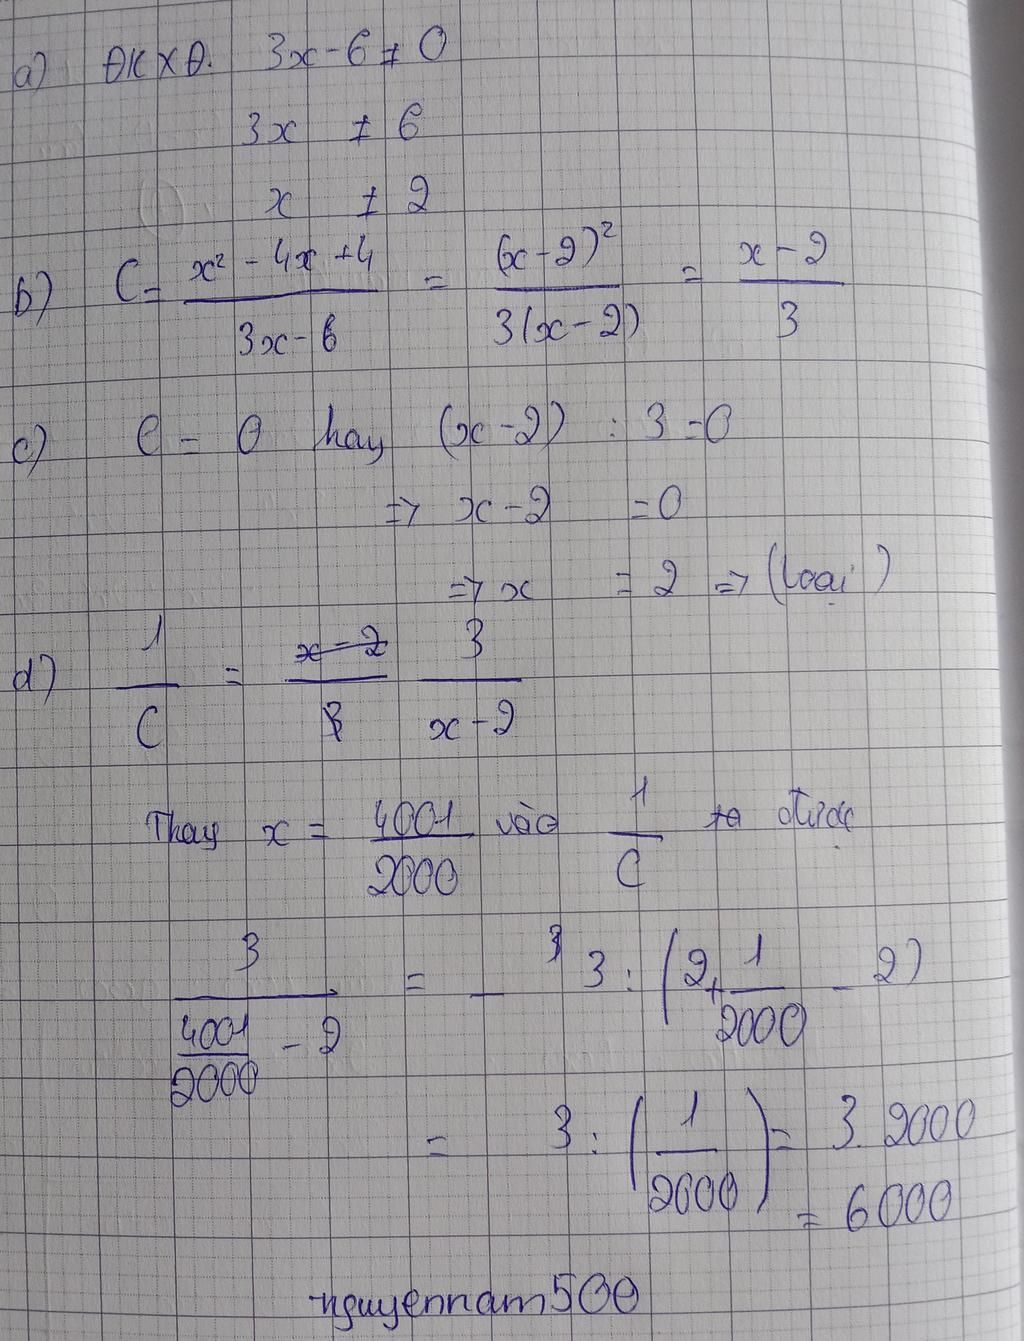 a) ĐKXĐ. 3x - 6 ≠ 0
3x ≠ 6
x ≠ 2
b) C = \frac{x² - 4x + 4}{3x - 6} = \frac{(x - 2)²}{3(x - 2)} = \frac{x - 2}{3}
c) C = 0 hay (x - 2) : 3 = 0
=> x - 2 = 0
=> x = 2 => (loại)
d) \frac{1}{C} = \frac{3}{x - 2}
Thay x = \frac{4001}{2000} vào \frac{1}{C} ta được
\frac{3}{\frac{4001}{2000} - 2} = 3 : (2 + \frac{1}{2000} - 2)
= 3 : (\frac{1}{2000}) = 3. 2000
= 6000
nguyennam500